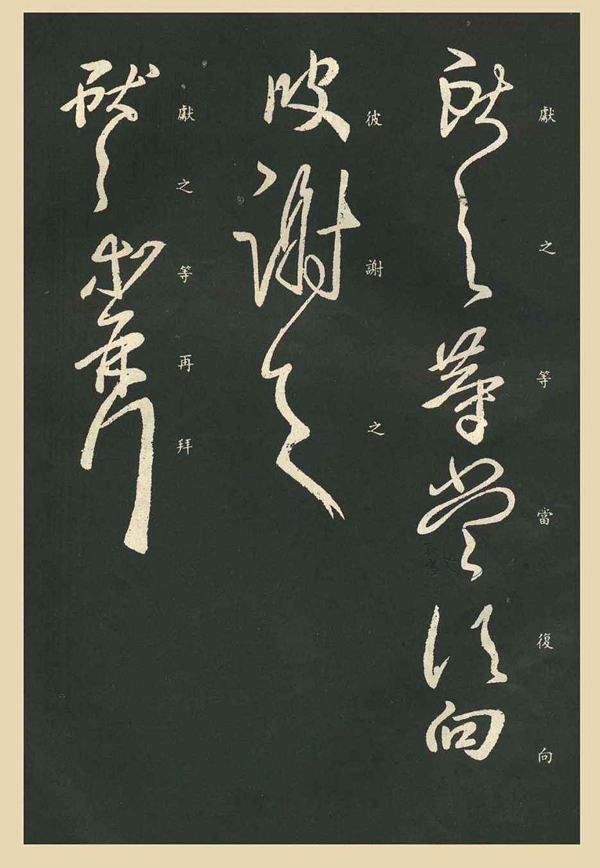 獻之等當復向
彼謝之
獻之等再拜